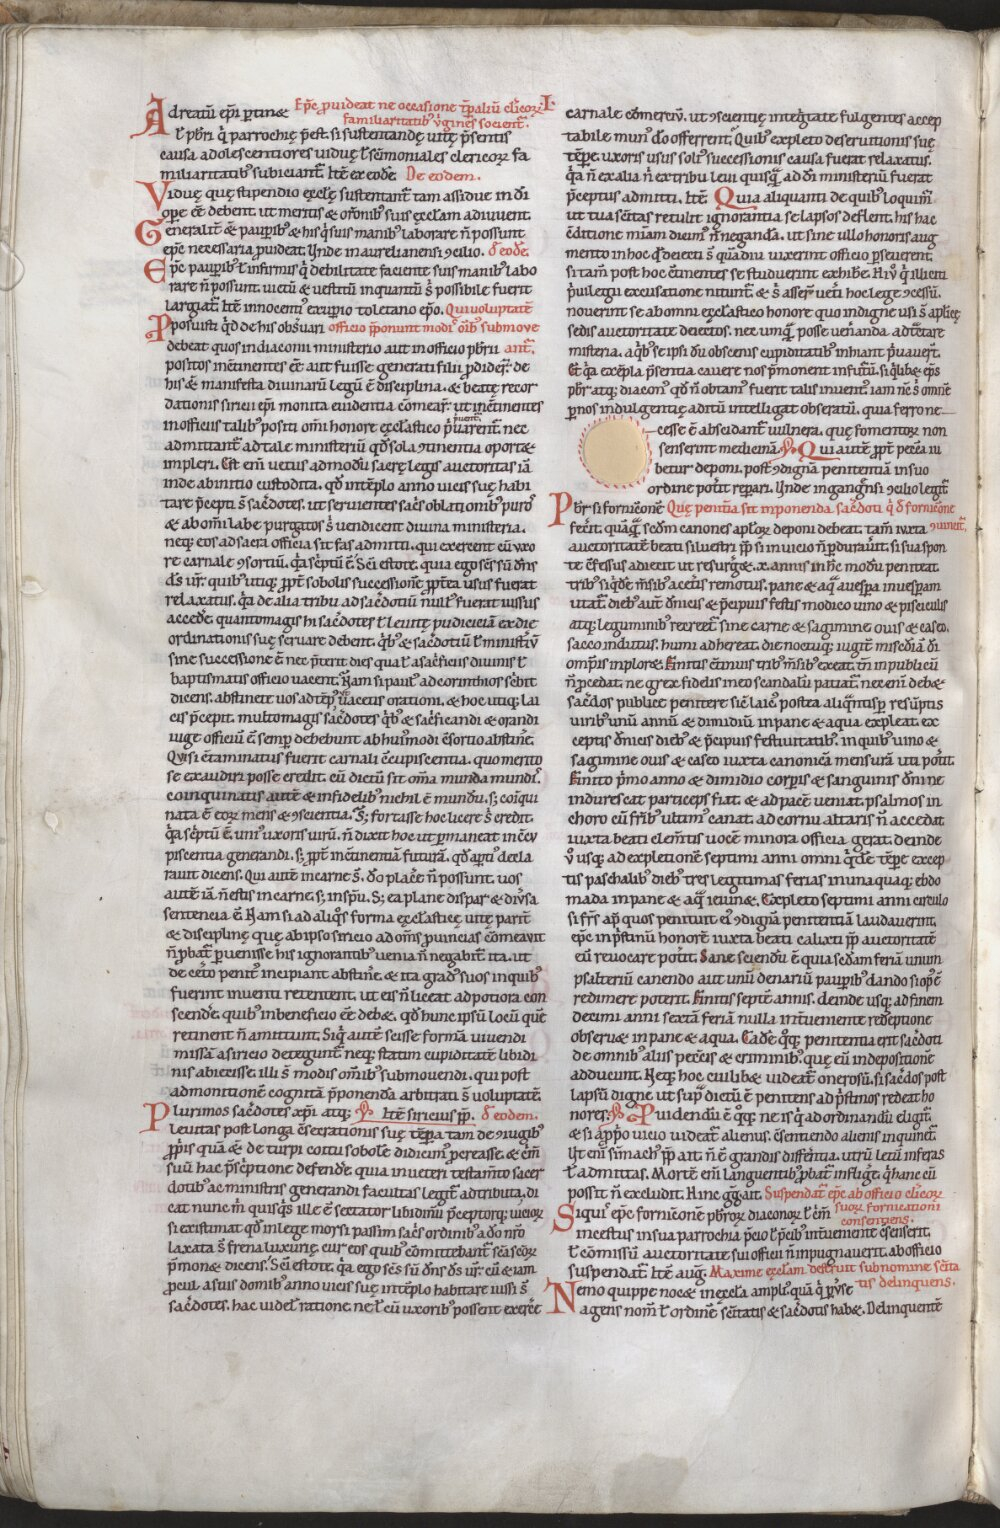 Adreatū ep̄i ꝑtinꝫ Ep̄c ꝓuideat ne occasione tp̄aliū cl̄icoꝝ
familiaritatib; v̄gines socient̄.
l̄ pb̄ri q̇ parrochię p̄est. si sustentandę uitę p̄sentis
causa adolescentiores viduę l̄ sc̄imoniales clericoꝝ fa
miliaritatib; subiciant̄. Itē ex eodē. De eodem.
Viduę quę stipendio ęccl̄ę sustentant̄ tam assidue in dī
oꝑe ēe debent. ut meritis & or̄onib; suis ęccl̄am adiuuent.
Generalit̄ & paupib; & his q̇ suis manib; laborare n̄ possunt
ep̄c necessaria ꝓuideat. Unde in aurelianensi ↄcilio. d̄ eodē.
Ep̄c paupib; l̄ infirmis q̇ debilitate faciente suis manib; labo
rare n̄ possunt. uictū & uestitū inquantū s̄ possibile fuerit
largiat̄. Itē innocent; exuꝑio toletano ep̄o. Qui uoluptatē
Pposuisti q̇d de his obs̄uari officio p̄ponunt modis om̄ib; submove
debeat quos in diaconii ministerio aut in officio pb̄rii ant̄.
positos incōtinentes ēe aut fuisse generati filii ꝓdider̄. de
his & manifesta diuinarū legū ē disciplina. & beatę recor
dationis siricii ep̄i monita euidentia cōmear̄. ut incōtinentes
in officiis talib; positi omī honore ęccl̄astico p̄uarent̄. nec
admittant̄ ad tale ministeriū qd̄ sola ↄtinentia oportꝫ
impleri. Est em̄ vetus admodū sacrę legis auctoritas iā
inde ab initio custodita. qd̄ in tēplo anno uicis suę habi
tare p̄cepti s̄ sac̄dotes. ut seruientes sac̄s oblationib; puros
& ab om̄i labe purgatos s̄ uendicent diuina ministeria.
neq; eos ad sacra officia sit fas admitti. qui exercent cū uxo
re carnale ↄsortiū. q̇a sc̄ptū ē. Sc̄i estote. quia ego sc̄s sū dn̄s
ds̄ ur̄. quib; utiq; ꝓpt̄ sobolis successionē ꝓpt̄ea usus fuerat
relaxatus. q̇a de alia tribu ad sac̄dotiū null; fuerat iussus
accedē. quantomagis hi sac̄dotes l̄ leuitę pudiciciā ex die
ordinationis suę seruare debent. q̇b; & sac̄dotiū l̄ ministīu
sine successione ē. nec p̄terit dies qua l̄ a sac̄ficiis diuinis l̄
baptismatis officio uacent. Nam si paul; ad corinthios sc̄bit
dicens. abstinete uos ad temp; ut uacetis orationi. & hoc utiq; lai
cis p̄cepit. multomagis sac̄dotes q̇b; & sac̄ficandi & orandi
iuge officiū ē semꝑ debebunt ab huiꝰmodi cōsortio abstinē.
Qui si cōtaminatus fuerit carnali cōcupiscentia. quo merito
se exaudiri posse credit. cū dictū sit om̄a munda mundis.
coinquinatis autē & infidelib; nichil ē mundū. s; coīqui
nata ē eoꝝ mens & ↄscientia. S; fortasse hoc licere s̄ credit.
q̇a sc̄ptū ē. uni; uxoris uirū. n̄ dixit hoc ut ꝑmaneat in cōcu
piscentia generandi. s; ꝓpt̄ incōtinentiā futurā. qd̄ aptius decla
rauit dicens. Qui autē in carne s̄. dō placē n̄ possunt. uos
autē iā n̄ estis in carne. s; in sp̄u. S; ea plane dispar & diūsa
sententia ē. Nam si ad aliq̇s forma ęccl̄asticę uitę parit̄
& disciplinę quę ab ip̄so siricio ad om̄s ꝓuincias cōmeauit
n̄ ꝓbat̄ ꝑuenisse his ignorantib; uenia n̄ negabit̄. ita. ut
de cet̄o penit; incipiant abstinē. & ita gradus suos in quib;
fuerint inuenti retentent. ut eis n̄ liceat ad potiora con
scende. quib; in beneficio ēe debꝫ. qd̄ hunc ip̄sū locū quē
retinent n̄ amittunt. Siq̇ autē scisse formā uiuendi
missā a siricio deteguntr̄. neq; statim cupiditatē libidi
nis abiecisse. illi s̄ modis om̄ib; submouendi. qui post
admonitionē cognitā p̄ponenda arbitrati s̄ uoluptatē.
Plurimos sac̄dotes xp̄i atq; Itē siricius pp̄. d̄ eodem.
leuitas post longa cōsecrationis suę tēpora. tam de ↄiugib;
ꝓp̄iis quā & de turpi coitu sobolē didicim; ꝓcreasse. & c̄m
suū hac p̄sc̄ptione defendē. quia in ueteri testam̄to sacer
dotib; ac ministris generandi facultas legit̄ adtributa. di
cat nunc m̄ quisq̇s ille ē sectator libidinū p̄ceptorq; uicioꝝ
si existimat qd̄ in lege moysi passim sac̄s ordinib; a dō nr̄o
laxata s̄ frena luxurię. cur eos quib; cōmittebant̄ sc̄a sc̄oꝝ
p̄monꝫ dicens. Sc̄i estote. q̇a ego sc̄s sū dn̄s ds̄ ur̄. cur & iam
ꝓcul a suis domib; anno uicis suę in tēplo habitare iussi s̄
sac̄dotes. hac uidel; ratione. ne l̄ cū uxorib; possent exerc̄e
carnale cōmerciū. ut ↄscientię integ̓tate fulgentes accep
tabile mun; dō offerrent. Quib; expleto deseruitionis suę
tēpe. uxoris usus soli; successionis causa fuerat relaxatus.
q̇a n̄ ex alia n̄ ex tribu leui quisq̇ ad dī ministeriū fuerat
p̄ceptus admitti. Itē Quia aliquanti de quib; loquim̄
ut tua sc̄itas retulit ignorantia se lapsos deflent. his hac
cōditione mīam dicim; n̄ negandā. ut sine ullo honoris aug
mento in hoc q̇ detecti s̄ quādiu uixerint officio ꝑseuerent.
si tam̄ post hoc cōtinentes se studuerint exhibē. Hi ū q̇ illiciti
p̄uilegii excusatione nitunt̄. & s̄ asserr̄ ueti hoc lege ↄcessū.
nouerint se ab omni ęccl̄astico honore quo indigne usi s̄ ap̄licę
sedis auctoritate deiectos. nec umq̇ posse ueneranda adtr̄ctare
misteria. a q̇b; se ip̄si dū obscenis cupiditatib; inhiant p̄uauer̄t.
Et q̇a exēpla p̄sentia cauere nos p̄monent infutūr. si q̇libꝫ ep̄s
pb̄r. atq; diacon; qd̄ n̄ obtam; fuerit talis inuent;. iam nc̄ s̄ omnē
ꝑ nos indulgentię aditū intelligat obseratū. quia ferro ne
cesse ē abscidant̄ uulnera. quę fomentoꝝ non
senserint medicinā. Qui autē ꝓpt̄ pc̄cā iu
betur deponi. post ↄdignā penitentiā in suo
ordine pot̄it reꝑari. Unde in gangrēsi ↄcilio legit̄.
Pbr̄ si fornicēonē Quę penitīa sit inponenda sac̄doti q̇ d̄ fornicēone
fec̄it. quāq̇ sc̄dm canones apl̄oꝝ deponi debeat. tam̄ iuxta ↄuincit̄.
auctoritatē beati siluestri pp̄ si in uicio n̄ ꝑdurauit. si sua spon
te cōfessus adiecit ut resurgꝫ. x. annis in hc̄ modū peniteat.
trib; siq̇dē m̄sib; a cet̄is remotus. pane & aq̇ a uespa in uespam
utat̄. dieb; autē dn̄icis & p̄cipuis festis modico uino & pisciculis
atq; leguminib; recreet̄ sine carne & sagimine ouis & caseo.
sacco indutus. humi adhereat. die noctuq; iugit̄ misc̄dīā dī
om̄ptis implorꝫ. Finitis cōtinuis trib; m̄sib; exeat. tn̄ in publicū
n̄ ꝓcedat. ne grex fidelis in eo scandalū patiat̄. nec eni; debꝫ
sac̄dos publice penitere sic̄ laic;. postea aliq̇ntisꝑ resūptis
virib; unū annū & dimidiū in pane & aqua expleat. ex
ceptis dn̄icis dieb; & p̄cipuis festiuitatib;. in quib; uino &
sagimine ouis & caseo iuxta canonicā mensurā uti pot̄it.
Finito p̄mo anno & dimidio corꝑis & sanguinis dn̄i ne
indurescat particeps fiat. & ad pacē veniat. psalmos in
choro cū fr̄ib; ultim; canat. ad cornu altaris n̄ accedat.
iuxta beati clem̄tis uocē minora officia gerat. deinde
ū usq; ad expletionē septimi anni omni q̇dē tēpe. excep
tis paschalib; dieb; tres legitimas ferias in unaquaq; ebdo
mada in pane & aq̇ ieiunꝫ. Expleto septimi anni circulo
si fr̄s ap̄ quos penituit ei; ↄdignā penitentiā laudauerint.
ep̄c in p̄stinū honorē iuxta beati calixti pp̄ auctoritatē
eū reuocare pot̄it. Sane sciendū ē quia sc̄dam feriā unum
psalteriū canendo aut unū denariū paupib; dando si op; ē
redimere poterit. Finitis septē annis. deinde usq; ad finem
decimi anni sextā feriā nulla int̄ueniente redēptione
obseruꝫ in pane & aqua. Eadē q̇q; penitentia erit sac̄doti
de omnib; aliis pc̄cis & criminib;. quę eū in depositionē
adducunt. Neq; hoc cuilibꝫ uideat̄ onerosū. si sac̄dos post
lapsū digne ut sup̄ dictū ē penitens ad p̄stinos redeat ho
nores. Puidendū ē q̇q; ne is q̇ ad ordinandū eligit̄
& si a ꝓp̄io uicio videat̄ alienus. cōsentiendo alienis inquinet̄.
Ut em̄ sūmach; pp̄ ait. n̄ ē grandis diffentia. utrū letū inferas
l̄ admittas. Mortē em̄ languentib; ꝓbat̄ infligē. q̇ hanc cū
possit n̄ excludit. Hinc gg̓. ait. Suspendat̄ ep̄c ab officio cl̄icoꝝ
Siquis ep̄c fornicēonē pb̄roꝝ diaconoꝝ l̄ c̄m suoꝝ fornicationi
consentiens.
incestus in sua parrochia p̄cio l̄ p̄cib; int̄uenientē cōsenserit.
l̄ cōmissū auctoritate sui officii n̄ inpugnauerit. ab officio
suspendat̄. Itē aug̓. Maxime ęccl̄am destruit sub nomine sc̄ita
Nemo quippe nocꝫ in ęccl̄a ampli; quā q̇ ꝑūse tis delinquens.
agens nom̄ l̄ ordinē sc̄itatis & sac̄dotis habꝫ. Delinquentē